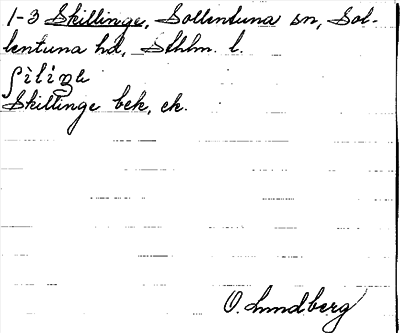 1-3 Skillinge, Sollentuna sn, Sol-
lentuna hd, Sthlm. l.
ʃiliŋe
Skillinge bek, ek.
O. Lundberg